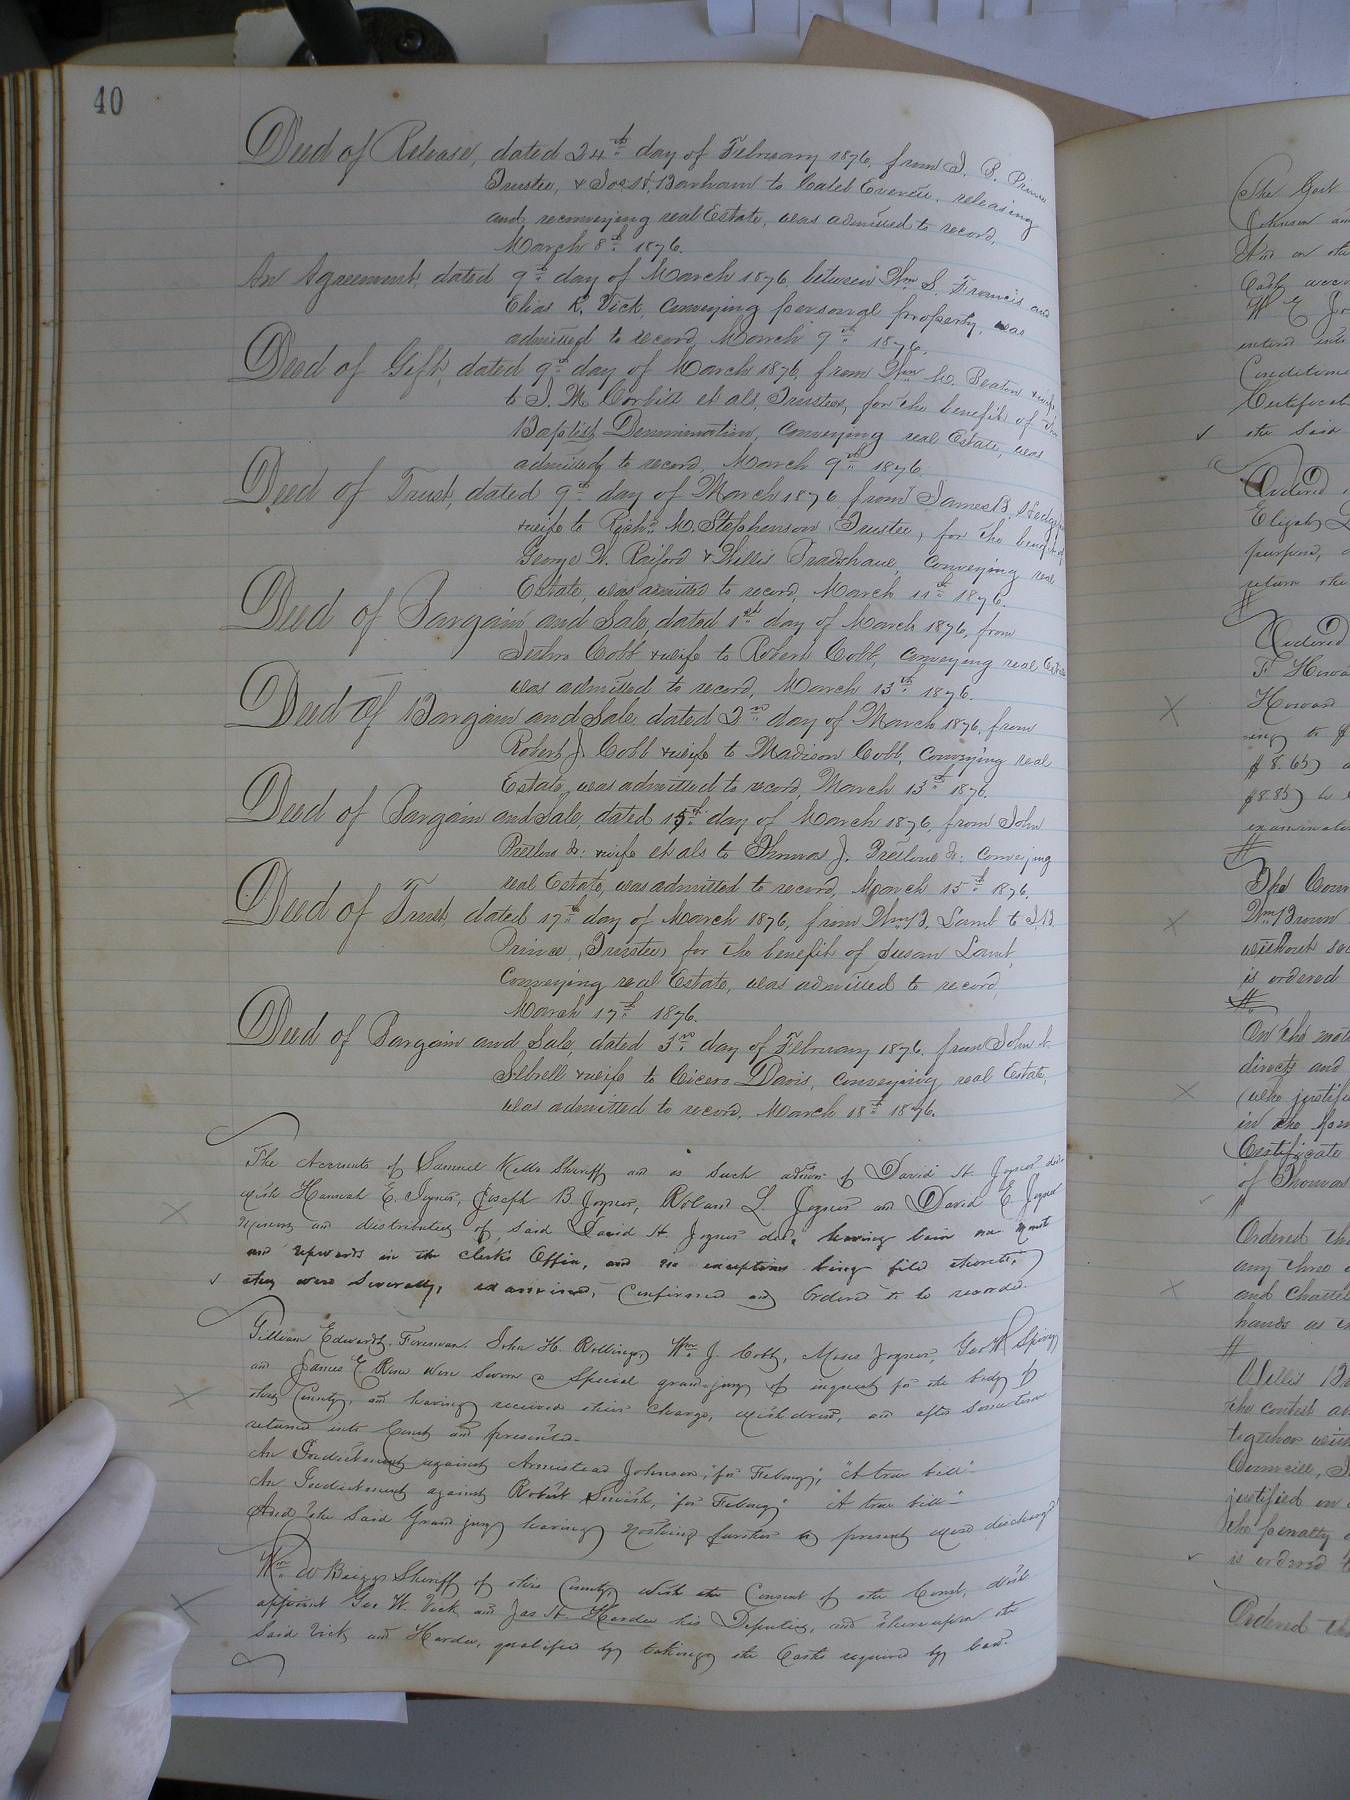 40
Deed of Release, dated 24th day of February 1876, from J. B. Prince
Trustee, & Jos. H. Barham to Caleb Everett, releasing
and reconveying real Estate, was admitted to record,
March 8th 1876.
An Agreement, dated 9th day of March 1876, between Wm S. Francis and
Elias K. Vick, conveying personal property, was
admitted to record, March 9th 1876.
Deed of Gift, dated 9th day of March 1876, from Wm H. Beaton & wife
to J. M. Corbitt et als, Trustees, for the benefit of the
Baptist Denomination, conveying real Estate, was
admitted to record, March 9th 1876.
Deed of Trust, dated 9th day of March 1876, from James B.
& wife to Richd. M. Stephenson, Trustee, for the benefit of
George W. Raiford & Willis Bradshaw, conveying real
Estate, was admitted to record, March 11th 1876.
Deed of Bargain and Sale, dated 1st day of March 1876, from
Cobb & wife to Robert Cobb, conveying real Estate
was admitted to record, March 13th 1876.
Deed of Bargain and Sale, dated 2nd day of March 1876, from
Robert J. Cobb & wife to Madison Cobb, conveying real
Estate, was admitted to record, March 13th 1876.
Deed of Bargain and Sale, dated 15th day of March 1876, from John
& wife et als to Thomas J. conveying
real Estate, was admitted to record, March 15th 1876.
Deed of Trust, dated 17th day of March 1876, from Wm B. Lamb to J. B.
Prince, (Trustee) for the benefit of Susan Lamb,
conveying real Estate, was admitted to record,
March 17th 1876.
Deed of Bargain and Sale, dated 3rd day of February 1876, from John N.
Sebrell & wife to Cicero Davis, conveying real Estate,
was admitted to record, March 18th 1876.
The Accounts of Samuel Kello Sheriff and as such admr of David H. Joyner decd
with Hannah E. Joyner, Joseph B. Joyner, Roland L. Joyner and David E. Joyner
and distributees of said David H. Joyner decd, having been one month
and upwards in the clerks Office, and no exceptions being filed thereto,
they were severally, examined, confirmed and Ordered to be recorded.
Gilliam Edwards, Foreman, John H. Rollings, Wm J. Cobb, Moses Joyner, Geo W Spivey
and James E Rose were sworn a Special grand jury of inquest for the body of
this County, and having received their charge, withdrew, and after some time
returned into Court and presented.
An Indictment against Armistead Johnson, "for Felony", "A true bill"
An Indictment against Robert "for Felony" "A true bill"
And the said Grand jury having nothing further to present were discharged
Wm W Briggs Sheriff of this County, with the Consent of the Court, doth
appoint Geo W. Vick and Jas H. Harder his Deputies, and thereupon the
said Vick and Harder, qualified by taking the Oaths required by law.
The
Johnson
W E
Conditione
Certificat
the said
Ordered
Elijah
purpose,
return the
Ordered
F. Howa
Howard
ing to $
$8.65)
$8.85) to
The Cour
Wm Brown
without sec
is ordered
On the moti
directs and
(who justifi
in the
Certificate
of Thomas
Ordered tha
any three
and Chattel
hands as
Willis B
the contest
together with
justified
the penalty
is ordered
Ordered tha